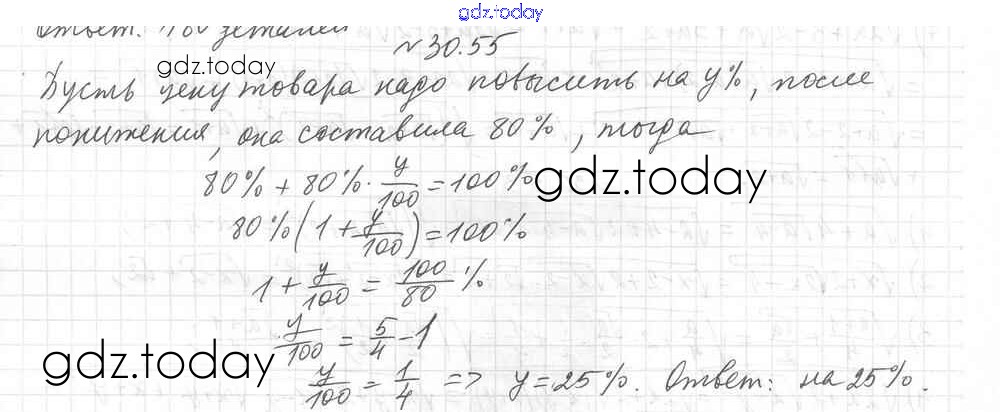 gdz.today
Ответ: 180 деталей
№30.55
gdz.today
Пусть цену товара надо повысить на y%, после
понижения, она составила 80%, тогда
80% + 80% · y/100 = 100%
gdz.today
80% (1 + y/100) = 100%
1 + y/100 = 100/80 %
y/100 = 5/4 - 1
gdz.today
y/100 = 1/4 => y = 25%. Ответ: на 25%.